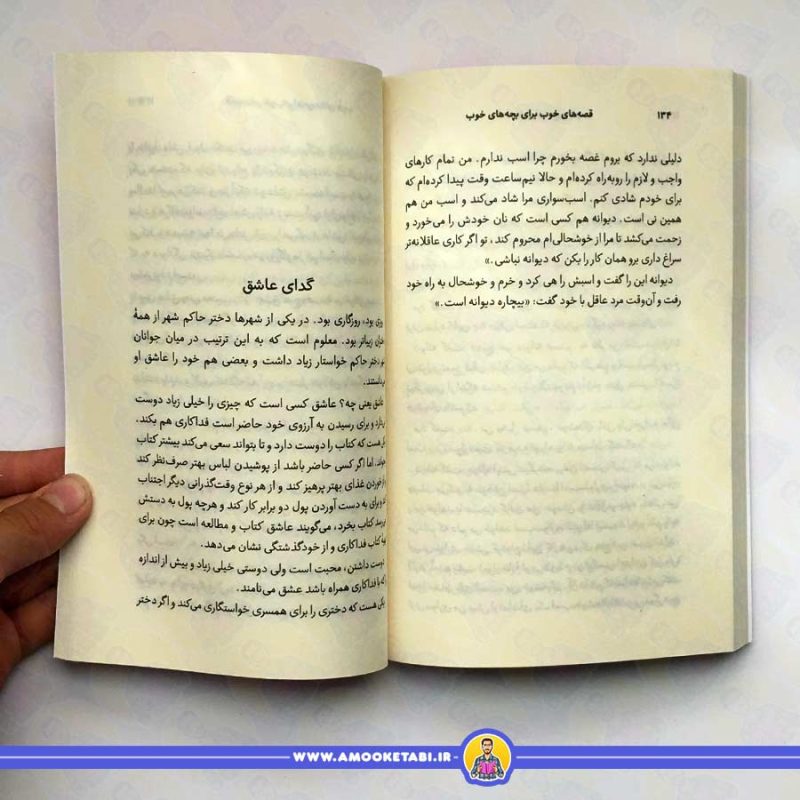 ۱۳۴
قصه‌های خوب برای بچه‌های خوب
دلیلی ندارد که بروم غصه بخورم چرا اسب ندارم. من تمام کارهای
واجب و لازم را روبه‌راه کرده‌ام و حالا نیم‌ساعت وقت پیدا کرده‌ام که
برای خودم شادی کنم. اسب‌سواری مرا شاد می‌کند و اسب من هم
همین نی است. دیوانه هم کسی است که نان خودش را می‌خورد و
زحمت می‌کشد تا مرا از خوشحالی‌ام محروم کند، تو اگر کاری عاقلانه‌تر
سراغ داری برو همان کار را بکن که دیوانه نباشی.»
دیوانه این را گفت و اسبش را هی کرد و خرم و خوشحال به راه خود
رفت و آن‌وقت مرد عاقل با خود گفت: «بیچاره دیوانه است.»
گدای عاشق
روزی بود، روزگاری بود. در یکی از شهرها دختر حاکم شهر از همهٔ
دختران زیباتر بود. معلوم است که به این ترتیب در میان جوانان
دختر حاکم خواستار زیاد داشت و بعضی هم خود را عاشق او
عاشق یعنی چه؟ عاشق کسی است که چیزی را خیلی زیاد دوست
و برای رسیدن به آرزوی خود حاضر است فداکاری هم بکند.
هست که کتاب را دوست دارد و تا بتواند سعی می‌کند بیشتر کتاب
اما اگر کسی حاضر باشد از پوشیدن لباس بهتر صرف‌نظر کند
خوردن غذای بهتر پرهیز کند و از هر نوع وقت‌گذرانی دیگر اجتناب
و برای به دست آوردن پول دو برابر کار کند و هرچه پول به دستش
کتاب بخرد، می‌گویند عاشق کتاب و مطالعه است چون برای
کتاب فداکاری و از خودگذشتگی نشان می‌دهد.
دوست داشتن، محبت است ولی دوستی خیلی زیاد و بیش از اندازه
که با فداکاری همراه باشد عشق می‌نامند.
یکی هست که دختری را برای همسری خواستگاری می‌کند و اگر دختر
WWW.AMOOKETABI.IR